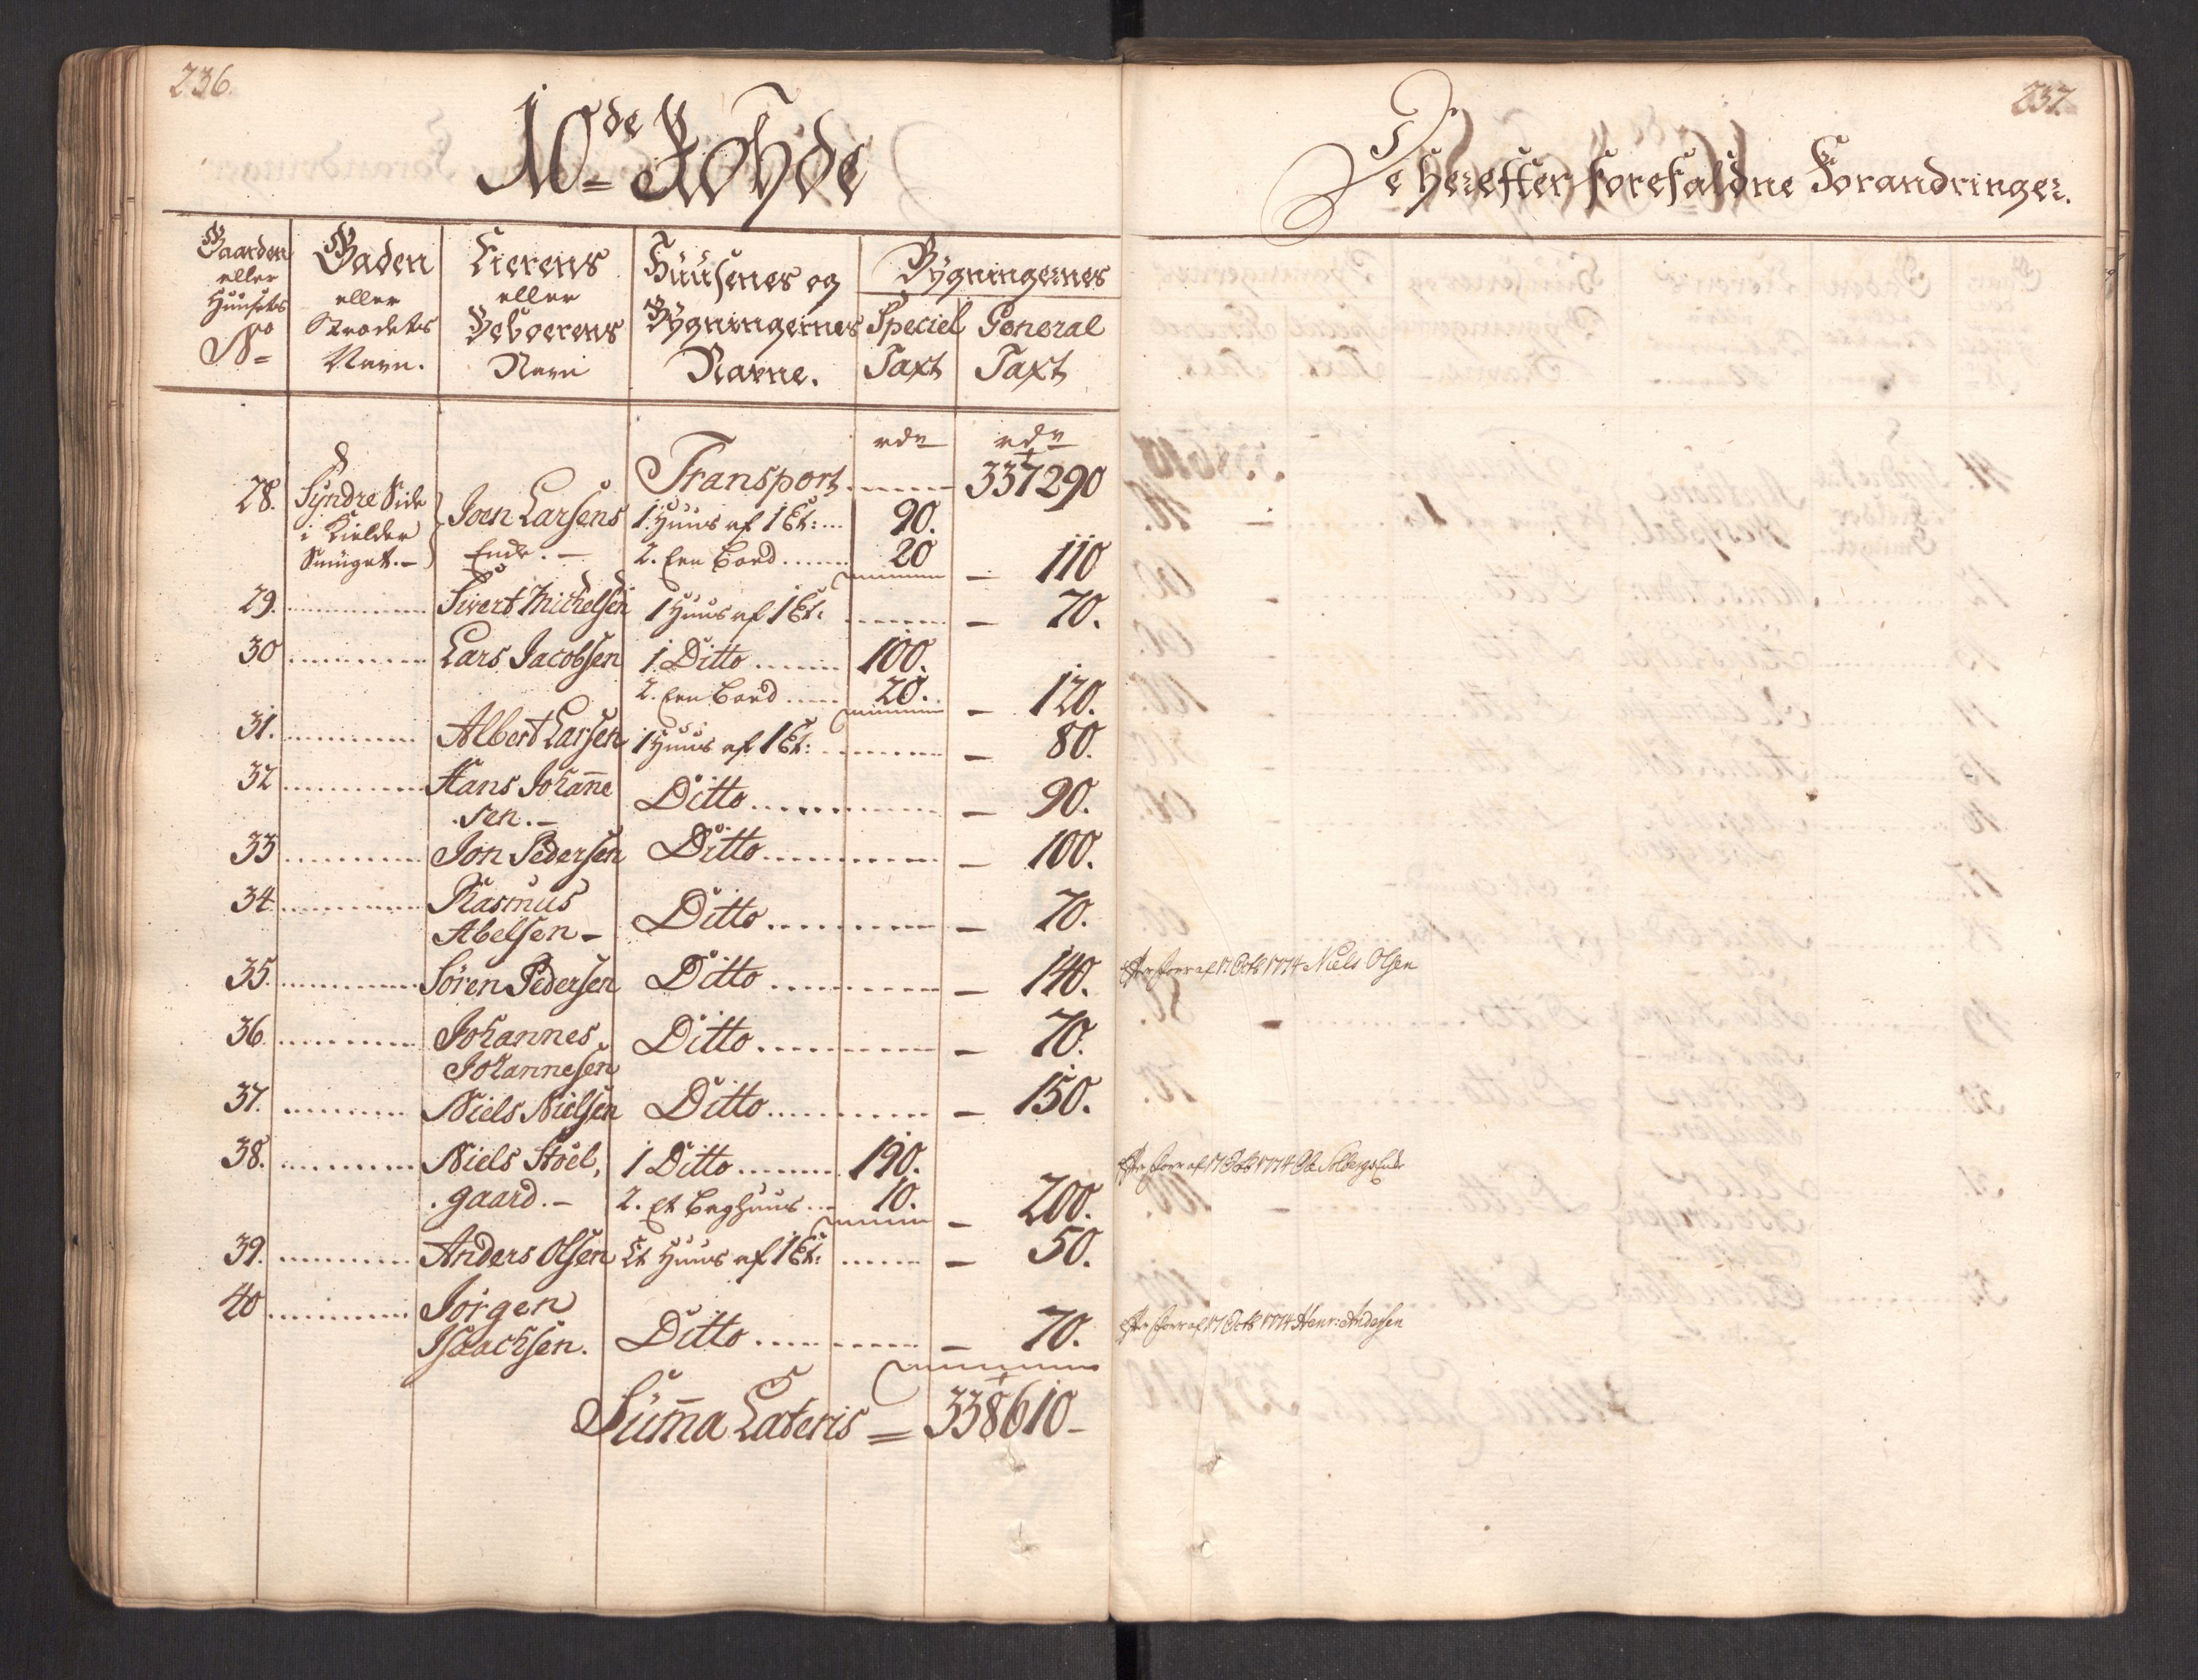 236.
10de Rohde
Gaarden eller Huusets No
Gaden eller Strædets Navn.
Eierens eller Beboerens Navn
Huusenes og Bygningernes Navne.
Bygningernes
Speciel Taxt
General Taxt
rdr rdr
Transport 337290
28. Syndre Side Joen Larsens 1 Huus af 1 Et: 90.
i Kielder Smuget. Enke. 2. Een Boed 20 110
29. Sivert Michelsen 1 Huus af 1 Et: 70.
30 Lars Jacobsen 1. Ditto 100.
2. Een Boed 20. 120.
31. Albert Larsen 1 Huus af 1 Et: 80.
32 Hans Johan̄e Ditto 90.
sen.
33 Jon Pedersen Ditto 100.
34 Rasmus
Abelsen Ditto 70.
35. Sören Pedersen Ditto 140.
36. Johannes Ditto 70.
Johannesen
37. Niels Nielsen Ditto 150.
38. Niels Stoel, 1 Ditto 190.
gaard. 2. Et Beghuus 10. 200.
39. Anders Olsen Et Huus af 1 Et: 50.
40 Jörgen
Isaachsen. Ditto 70.
Sum̄a Lateris = 338610
237.
De herefter forefaldne Forandringer.
1774 Niels Olsen
1774 Ol. Solbergs Enke
1774 Henr: Andersen